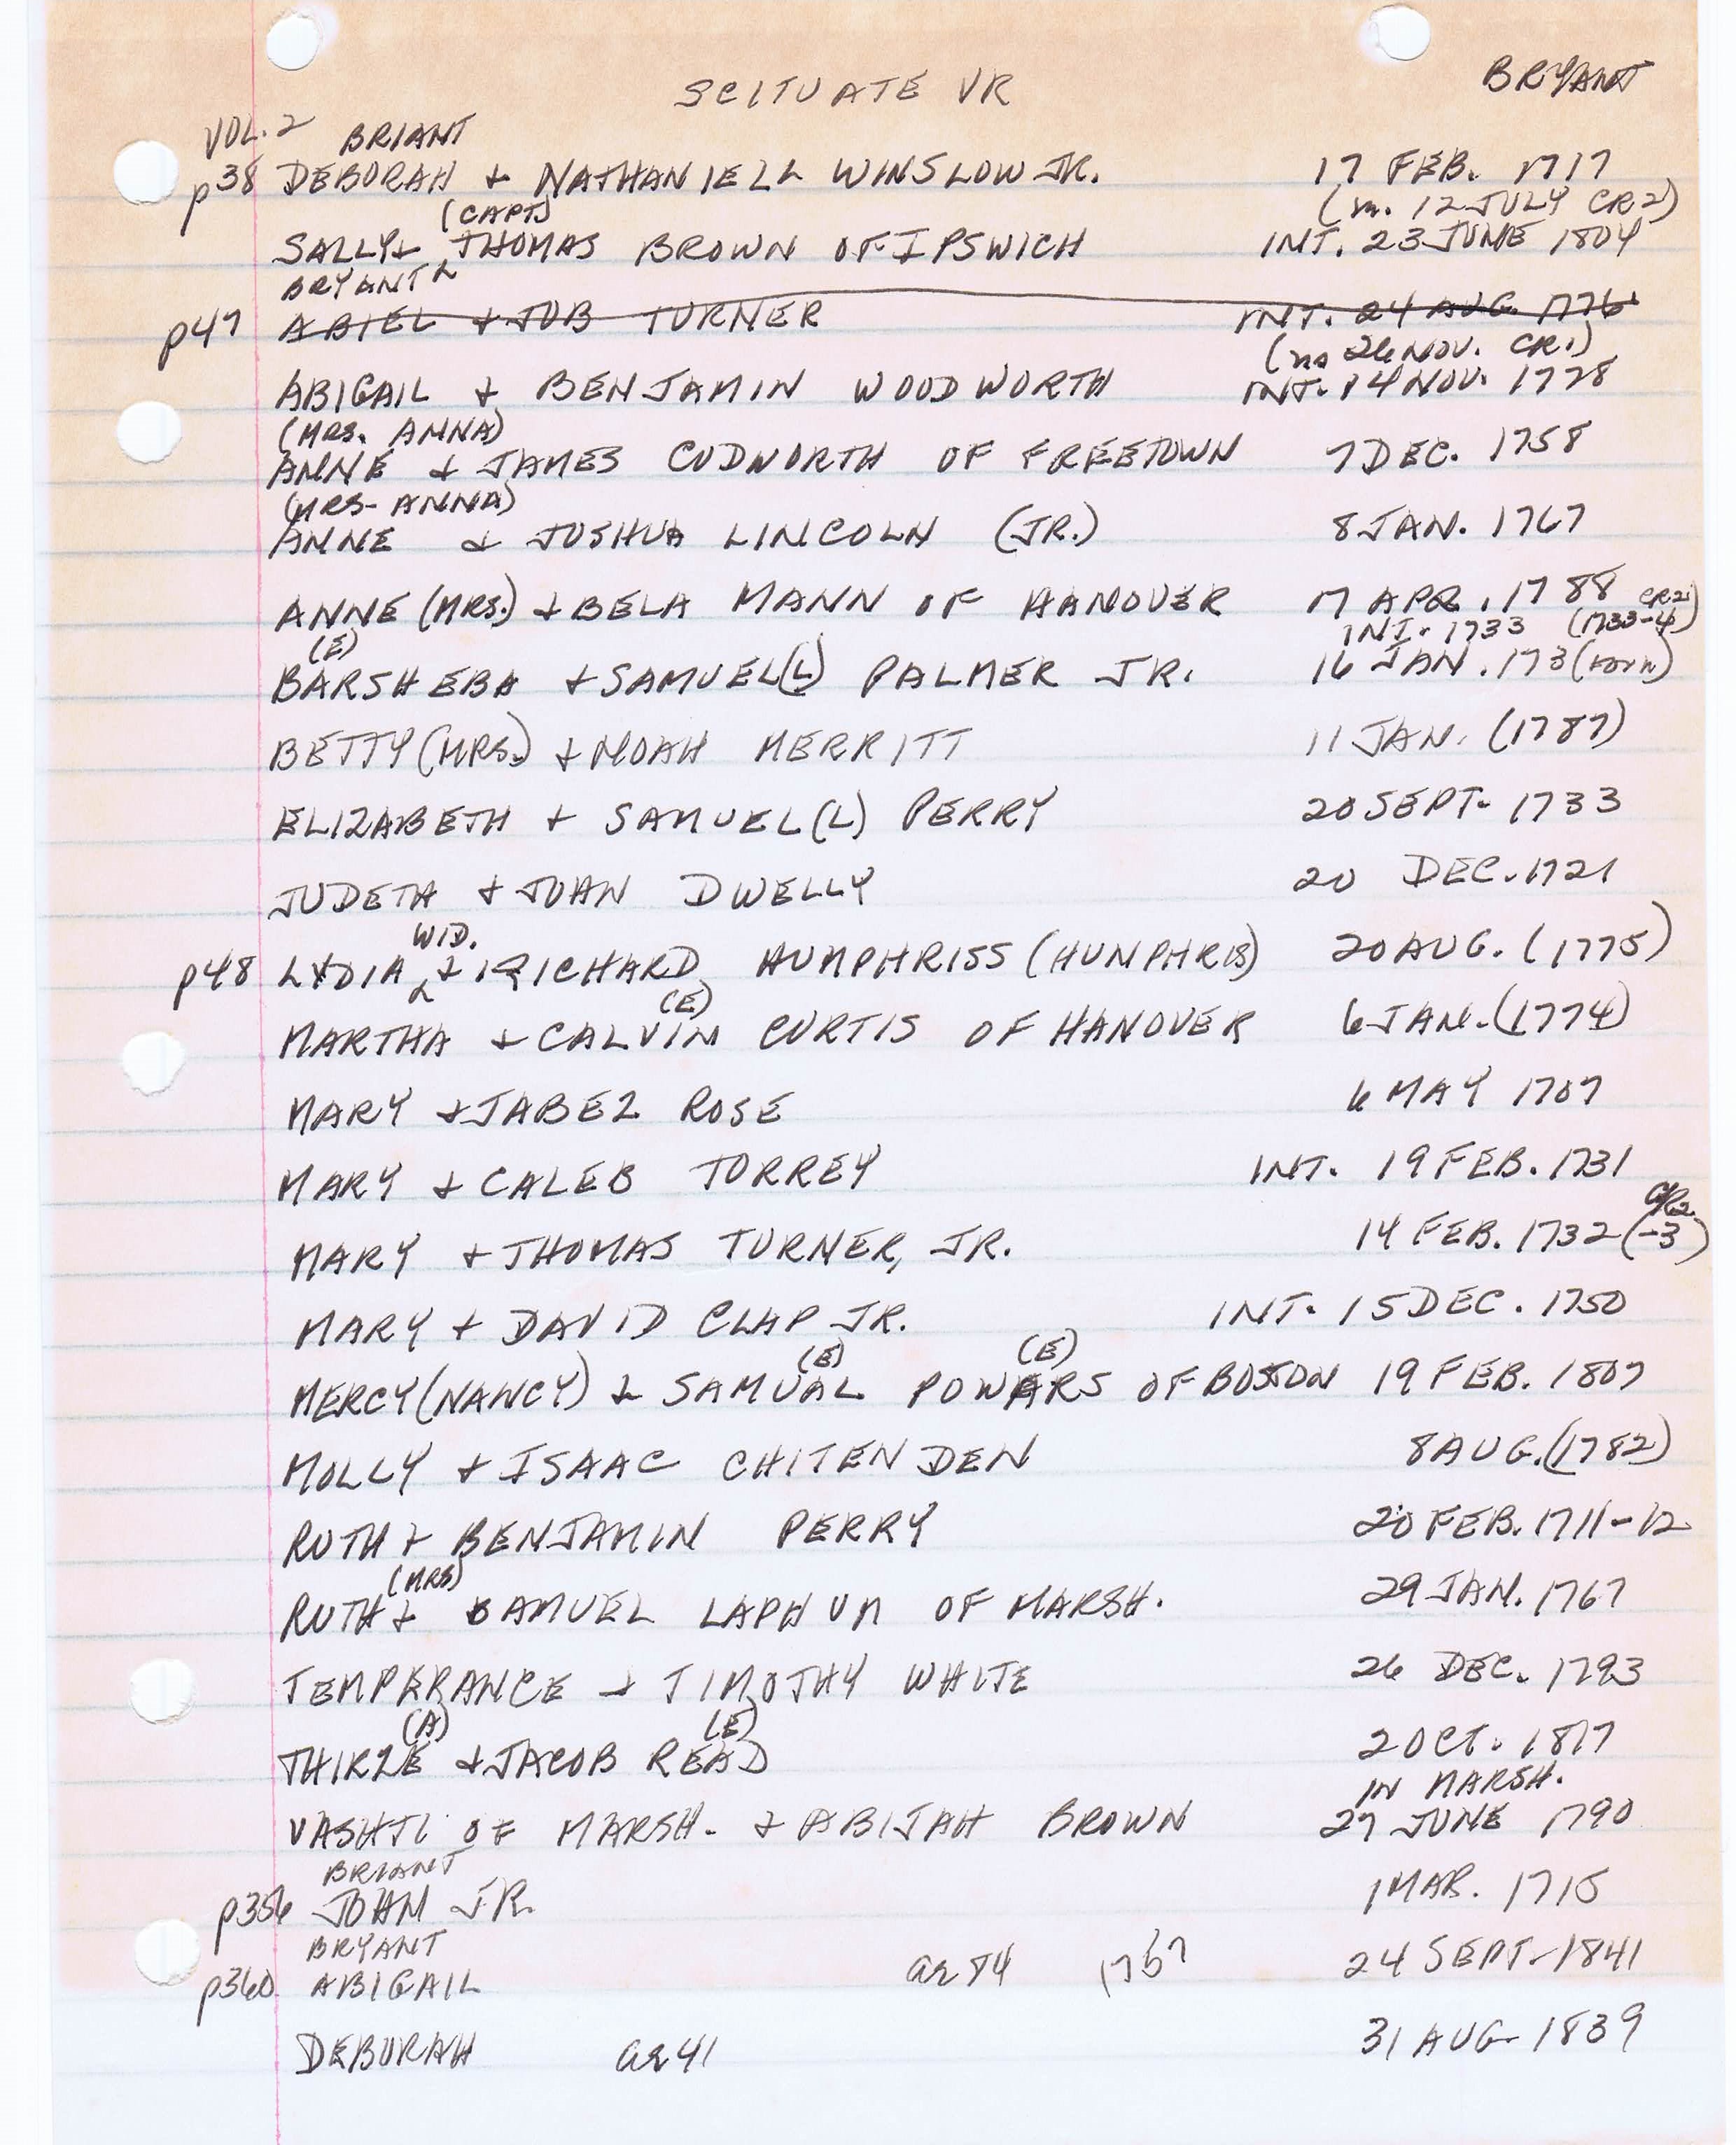 SCITUATE VR
BRYANT
VOL. 2 BRIANT
p38 DEBORAH & NATHANIELL WINSLOW JR. 17 FEB. 1717
(CAPT) (m. 12 JULY CR2)
SALLY & THOMAS BROWN OF IPSWICH INT. 23 JUNE 1804
BRYANT
p47 ABIEL & JOB TURNER INT. 24 AUG. 1776
(no 26 NOV. CR1)
ABIGAIL & BENJAMIN WOODWORTH INT. 14 NOV. 1778
(MRS. ANNA)
ANNE & JAMES CUDWORTH OF FREETOWN 7 DEC. 1758
(MRS. ANNA)
ANNE & JOSHUA LINCOLN (JR.) 8 JAN. 1767
ANNE (MRS.) & BELA MANN OF HANOVER 17 APR. 1788
(E) INT. 1733 (1733-4 CR2)
BARSHEBA & SAMUEL(L) PALMER JR. 16 JAN. 173(torn)
BETTY (MRS.) & NOAH MERRITT 11 JAN. (1787)
ELIZABETH & SAMUEL(L) PERRY 20 SEPT. 1733
JUDETH & JOHN DWELLY 20 DEC. 1721
WID.
p48 LYDIA & RICHARD HUMPHRISS (HUMPHRIS) 20 AUG. (1775)
(E)
MARTHA & CALVIN CURTIS OF HANOVER 6 JAN. (1774)
MARY & JABEZ ROSE 6 MAY 1707
MARY & CALEB TORREY INT. 19 FEB. 1731
CR2
MARY & THOMAS TURNER, JR. 14 FEB. 1732 (-3)
MARY & DAVID CLAP JR. INT. 15 DEC. 1750
(E) (E)
MERCY (NANCY) & SAMUAL POWARS OF BOSTON 19 FEB. 1807
MOLLY & ISAAC CHITENDEN 8 AUG. (1782)
RUTH & BENJAMIN PERRY 20 FEB. 1711-12
(MRS)
RUTH & SAMUEL LAPHUM OF MARSH. 29 JAN. 1767
TEMPERANCE & TIMOTHY WHITE 26 DEC. 1793
(A) (E)
THIRZE & JACOB READ 2 OCT. 1817
IN MARSH.
VASHTI OF MARSH. & ABIJAH BROWN 27 JUNE 1790
BRIANT
p356 JOHN JR. 1 MAR. 1715
BRYANT
p360 ABIGAIL ae 84 1757 24 SEPT. 1841
DEBORAH ae 41 31 AUG. 1839